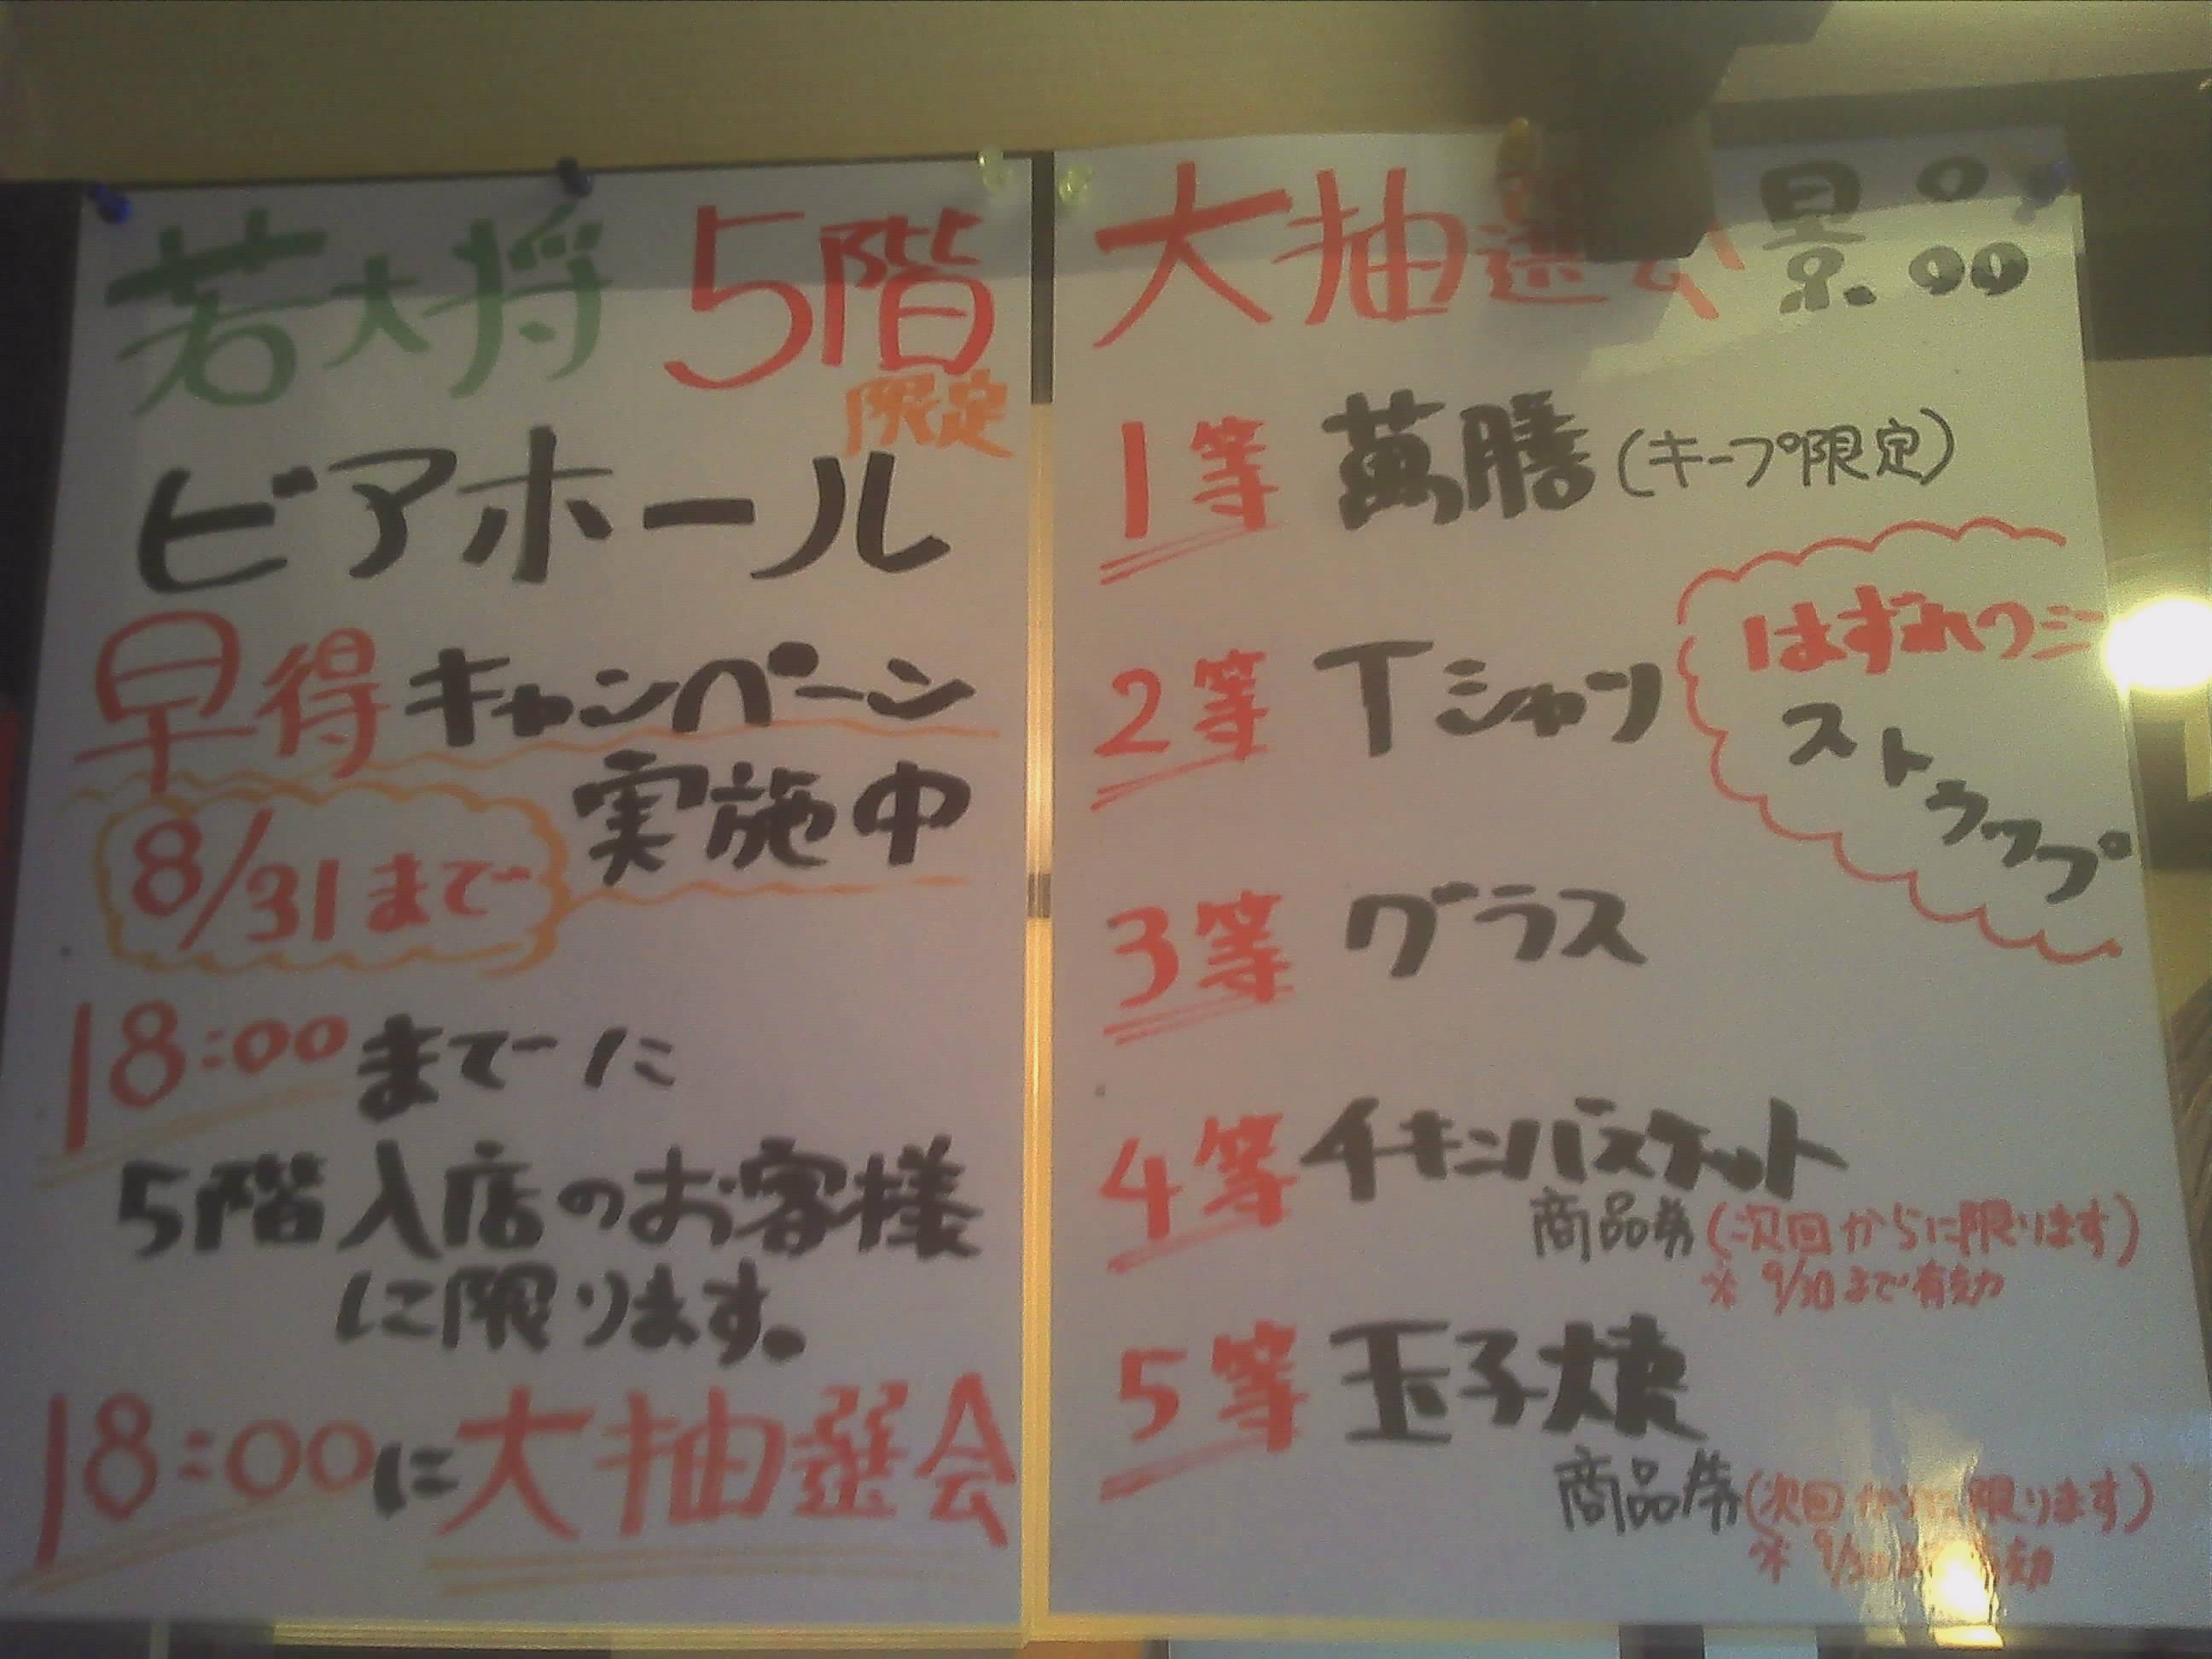 若大将 5階
限定
ビアホール
早得キャンペーン
実施中
8/31まで
18:00までに
5階入店のお客様
に限ります。
18:00に大抽選会
大抽選会 景品
1等 萬膳(キープ限定)
はずれクジ
ストラップ
2等 Tシャツ
3等 グラス
4等 チキンバスケット
商品券(次回からに限ります)
※9/30まで有効
5等 玉子焼
商品券(次回からに限ります)
※9/30まで有効